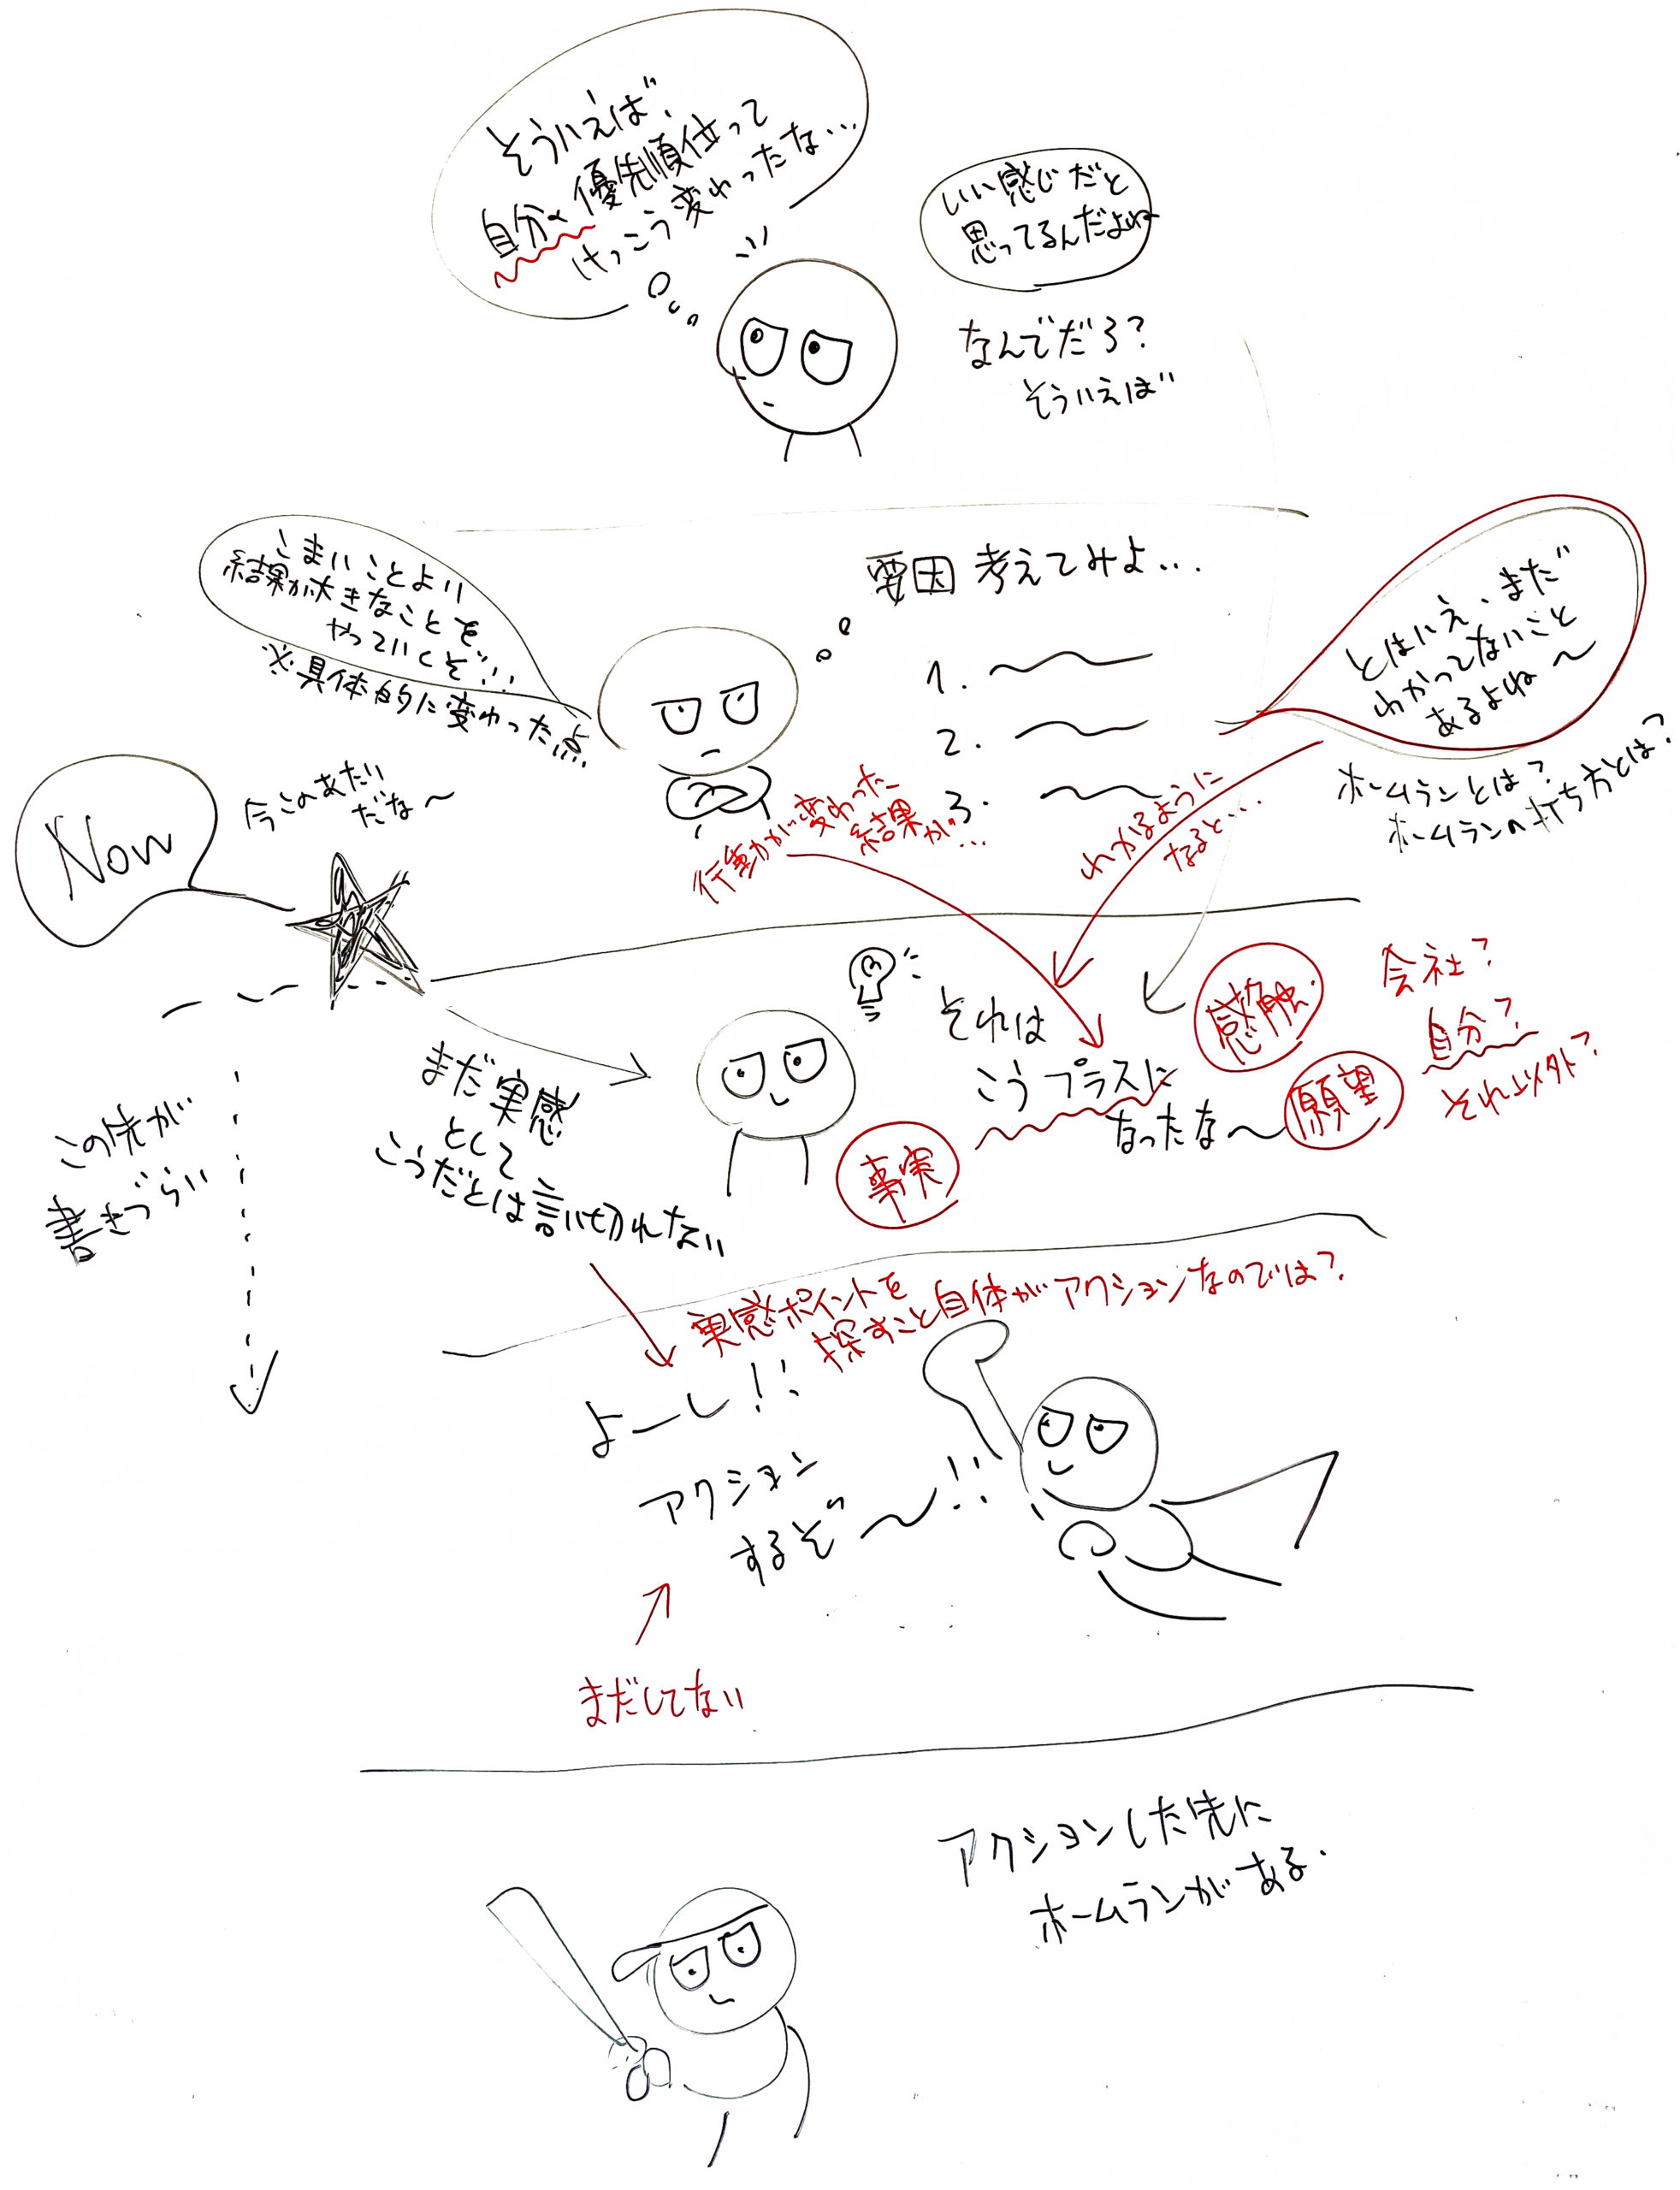 そういえば、
自分の優先順位って
けっこう変わったな…
いい感じだと
思ってるんだよね
なんでだろ?
そういえば
こまいことより
結果が大きなことを
やっていくぞ!!
※具体的に変わった点
要因 考えてみよ…
1.
2.
3.
とはいえ、まだ
わかってないこと
あるよね〜
ホームランとは?
ホームランの打ち方とは?
Now
今このあたい
だな〜
行動が変わった
結果が…
わかるように
なると…
それは
こうプラスに
なったな〜
感触
願望
事実
会社?
自分?
それ以外?
まだ実感
として
こうだとは言い切れない
この先が
書きづらい
実感ポイントを
探すこと自体がアクションなのでは?
よーし!!
アクション
するぞ〜!!
まだしてない
アクションした先に
ホームランがある.